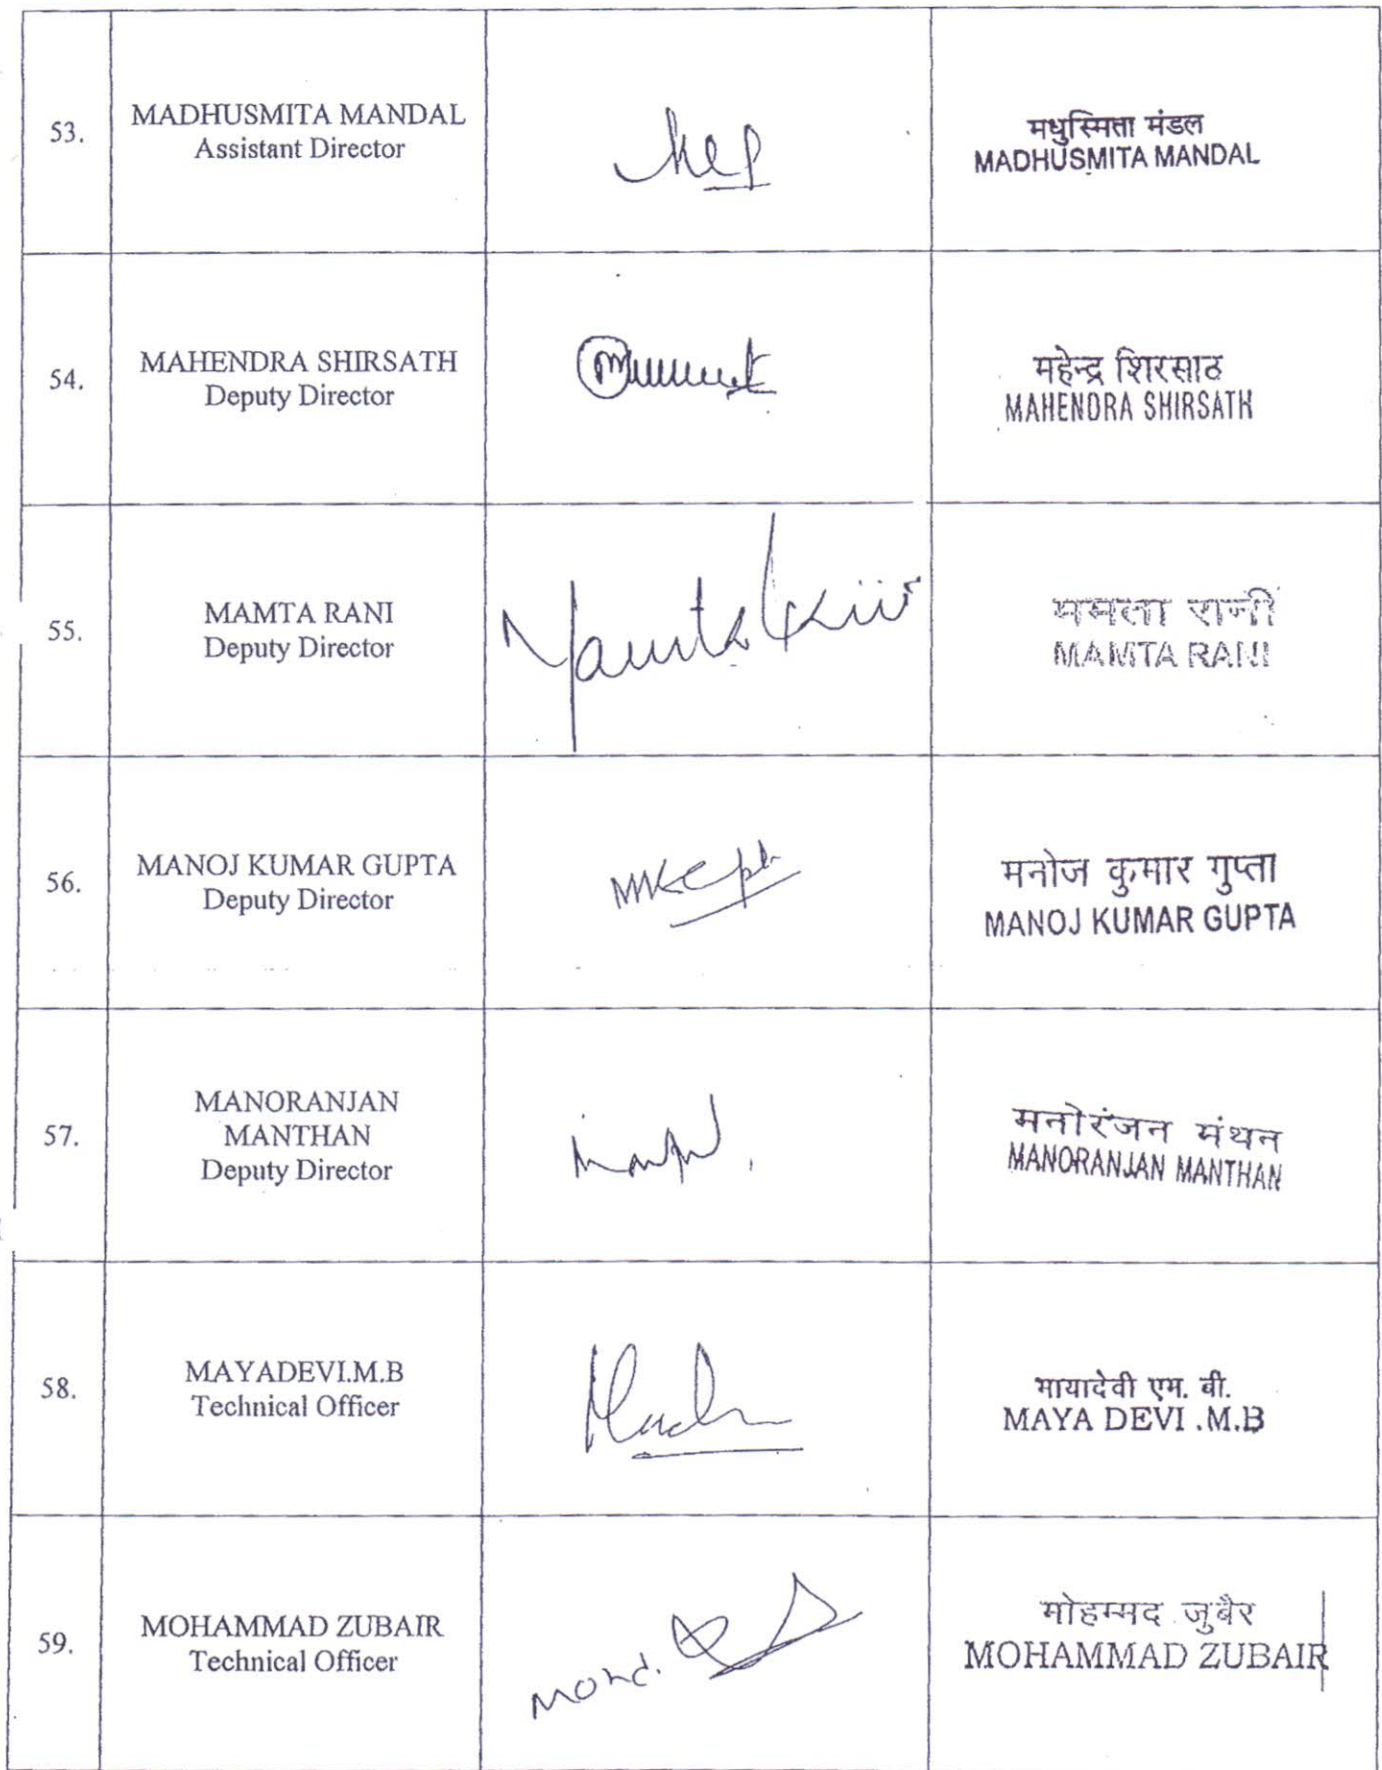 53.
MADHUSMITA MANDAL
Assistant Director
मधुस्मिता मंडल
MADHUSMITA MANDAL
54.
MAHENDRA SHIRSATH
Deputy Director
महेन्द्र शिरसाठ
MAHENDRA SHIRSATH
55.
MAMTA RANI
Deputy Director
ममता रानी
MAMTA RANI
56.
MANOJ KUMAR GUPTA
Deputy Director
मनोज कुमार गुप्ता
MANOJ KUMAR GUPTA
57.
MANORANJAN
MANTHAN
Deputy Director
मनोरंजन मंथन
MANORANJAN MANTHAN
58.
MAYADEVI.M.B
Technical Officer
मायादेवी एम. बी.
MAYA DEVI .M.B
59.
MOHAMMAD ZUBAIR
Technical Officer
Mohd.
मोहम्मद जुबैर
MOHAMMAD ZUBAIR